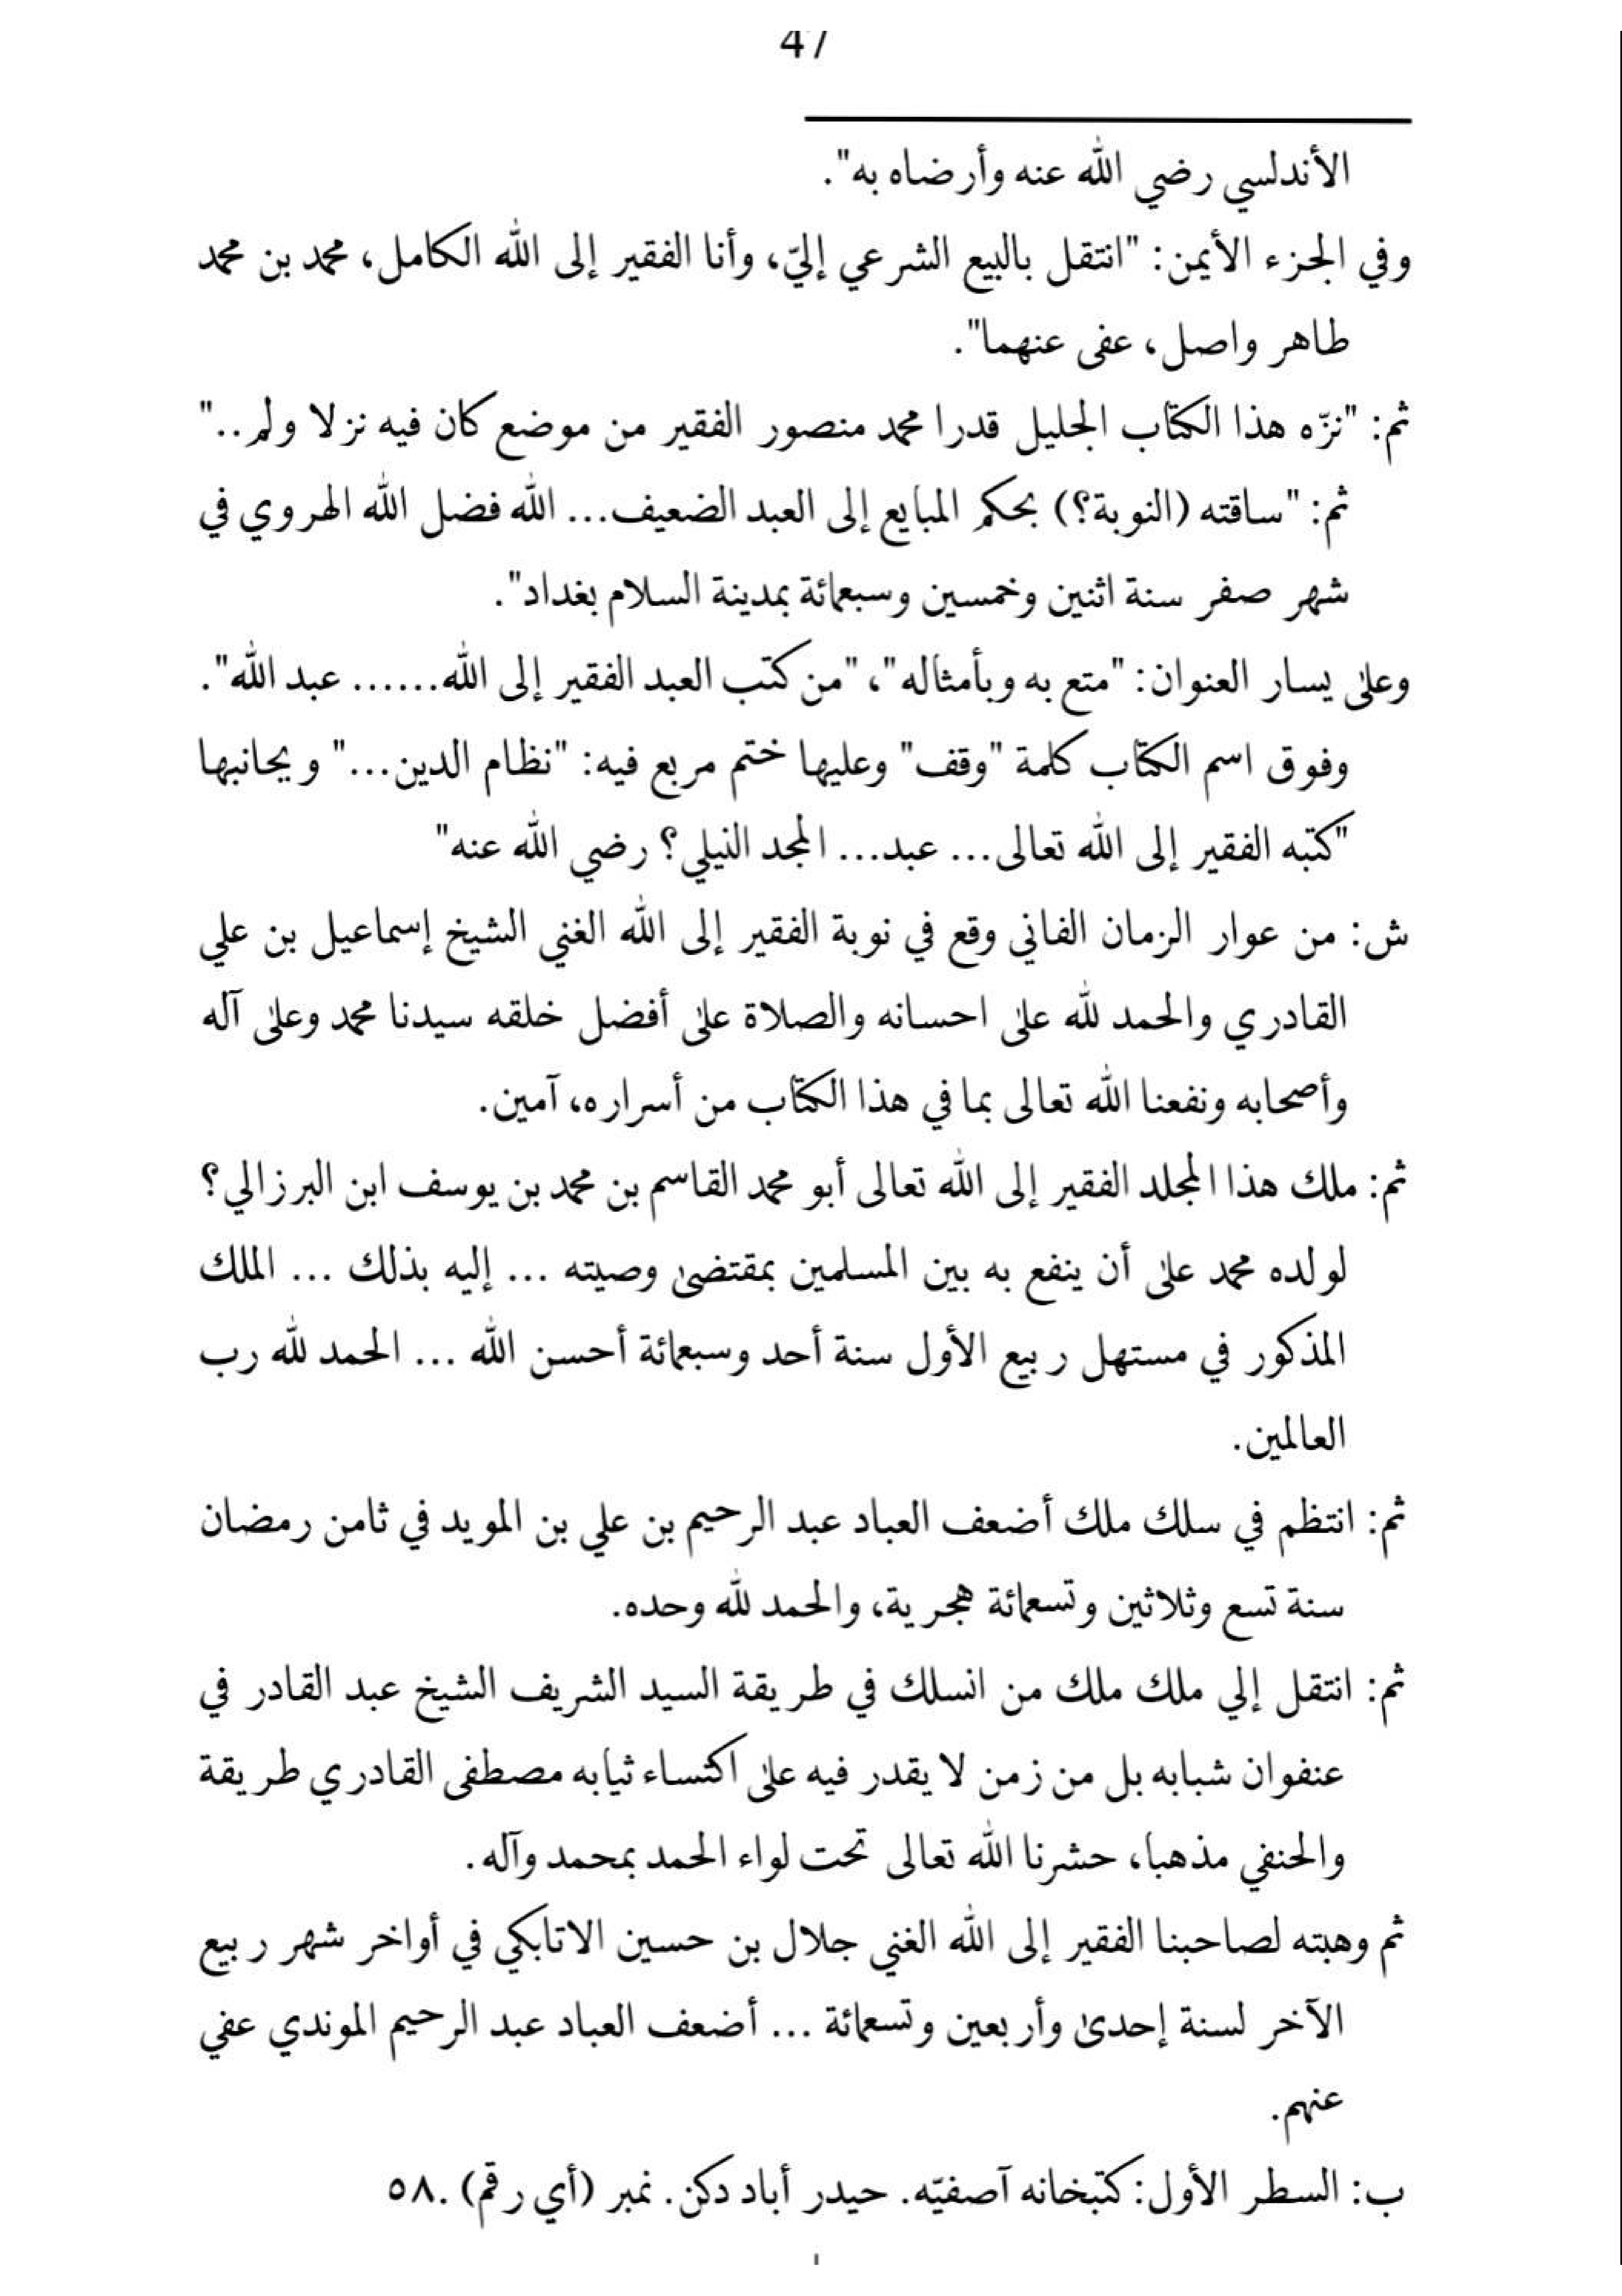 47
الأندلسي رضي الله عنه وأرضاه به".
وفي الجزء الأيمن: "انتقل بالبيع الشرعي إليّ، وأنا الفقير إلى الله الكامل، محمد بن محمد
طاهر واصل، عفى عنهما".
ثم: "نزّه هذا الكتاب الجليل قدرا محمد منصور الفقير من موضع كان فيه نزلا ولم.."
ثم: "ساقته (النوبة؟) بحكم المبايع إلى العبد الضعيف... الله فضل الله الهروي في
شهر صفر سنة اثنين وخمسين وسبعمائة بمدينة السلام بغداد".
وعلى يسار العنوان: "متع به وبأمثاله"، "من كتب العبد الفقير إلى الله...... عبد الله".
وفوق اسم الكتاب كلمة "وقف" وعليها ختم مربع فيه: "نظام الدين..." ويحانبها
"كتبه الفقير إلى الله تعالى... عبد... المجد النيلي؟ رضي الله عنه"
ش: من عوار الزمان الفاني وقع في نوبة الفقير إلى الله الغني الشيخ إسماعيل بن علي
القادري والحمد لله على احسانه والصلاة على أفضل خلقه سيدنا محمد وعلى آله
وأصحابه ونفعنا الله تعالى بما في هذا الكتاب من أسراره، آمين.
ثم: ملك هذا المجلد الفقير إلى الله تعالى أبو محمد القاسم بن محمد بن يوسف ابن البرزالي؟
لولده محمد على أن ينفع به بين المسلمين بمقتضى وصيته ... إليه بذلك ... الملك
المذكور في مستهل ربيع الأول سنة أحد وسبعمائة أحسن الله ... الحمد لله رب
العالمين.
ثم: انتظم في سلك ملك أضعف العباد عبد الرحيم بن علي بن المويد في ثامن رمضان
سنة تسع وثلاثين وتسعمائة هجرية، والحمد لله وحده.
ثم: انتقل إلي ملك ملك من انسلك في طريقة السيد الشريف الشيخ عبد القادر في
عنفوان شبابه بل من زمن لا يقدر فيه على اكتساء ثيابه مصطفى القادري طريقة
والحنفي مذهبا، حشرنا الله تعالى تحت لواء الحمد بمحمد وآله.
ثم وهبته لصاحبنا الفقير إلى الله الغني جلال بن حسين الاتابكي في أواخر شهر ربيع
الآخر لسنة إحدى وأربعين وتسعمائة ... أضعف العباد عبد الرحيم الموندي عفي
عنهم.
ب: السطر الأول: كتبخانه آصفيّه. حيدر أباد دكن. نمبر (أي رقم) .٥٨